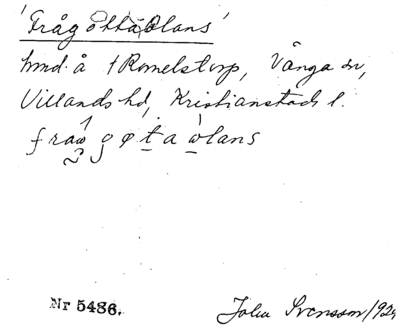 'Frågottaålans'
hmd. å 1 Romelstorp, Vånga sn,
Villands hd, Kristianstads l.
frawgøta wlans
Nr 5486.
John Svensson 192